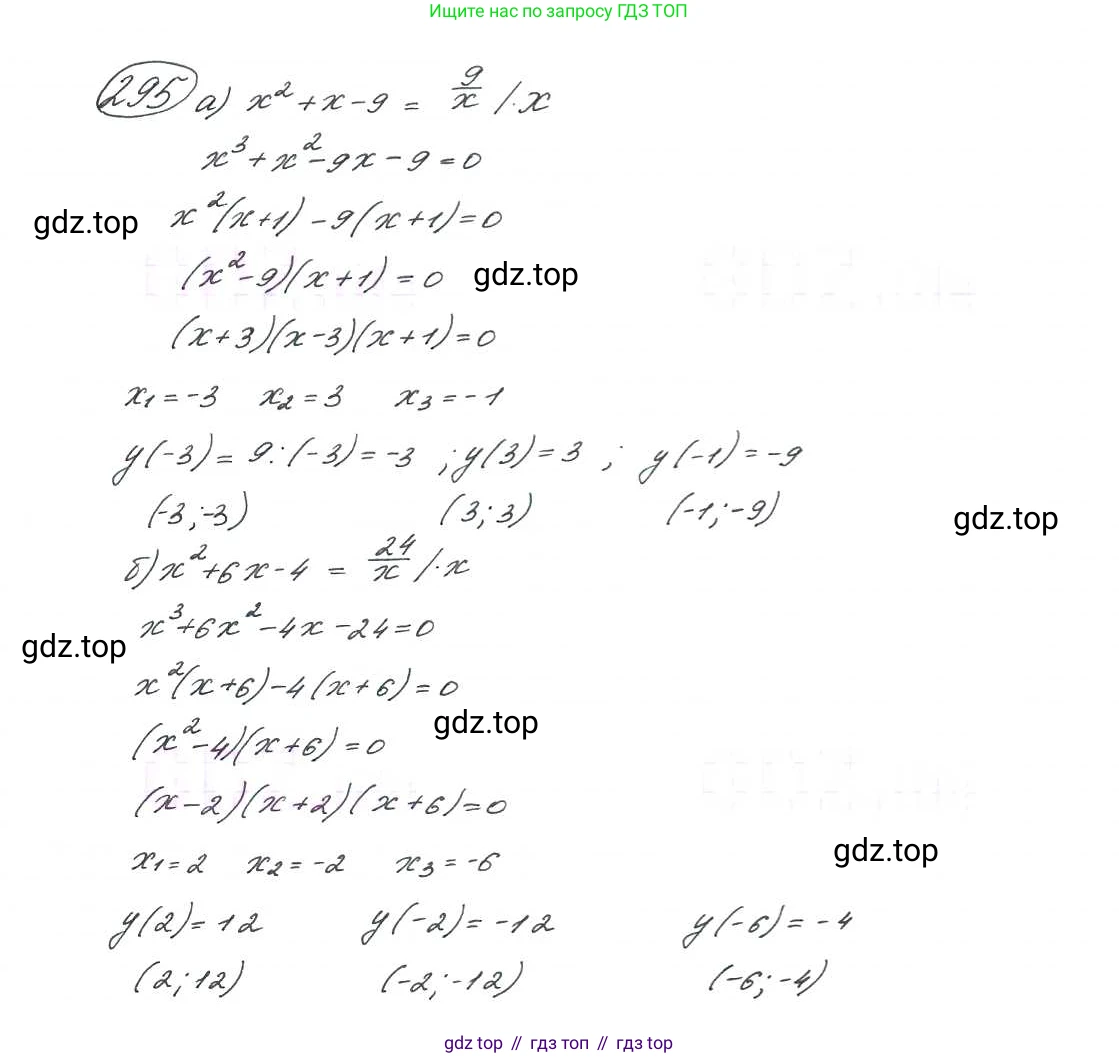 Ищите нас по запросу ГДЗ ТОП
295 а) x² + x - 9 = 9/x /·x
x³ + x² - 9x - 9 = 0
gdz.top x²(x+1) - 9(x+1) = 0
(x² - 9)(x+1) = 0 gdz.top
(x+3)(x-3)(x+1) = 0
x₁ = -3 x₂ = 3 x₃ = -1
y(-3) = 9:(-3) = -3 ; y(3) = 3 ; y(-1) = -9
(-3;-3) (3;3) (-1;-9) gdz.top
б) x² + 6x - 4 = 24/x /·x
x³ + 6x² - 4x - 24 = 0
gdz.top
x²(x+6) - 4(x+6) = 0
(x² - 4)(x+6) = 0 gdz.top
(x-2)(x+2)(x+6) = 0
x₁ = 2 x₂ = -2 x₃ = -6 gdz.top
y(2) = 12 y(-2) = -12 y(-6) = -4
(2;12) (-2;-12) (-6;-4)
gdz top // гдз топ // гдз top